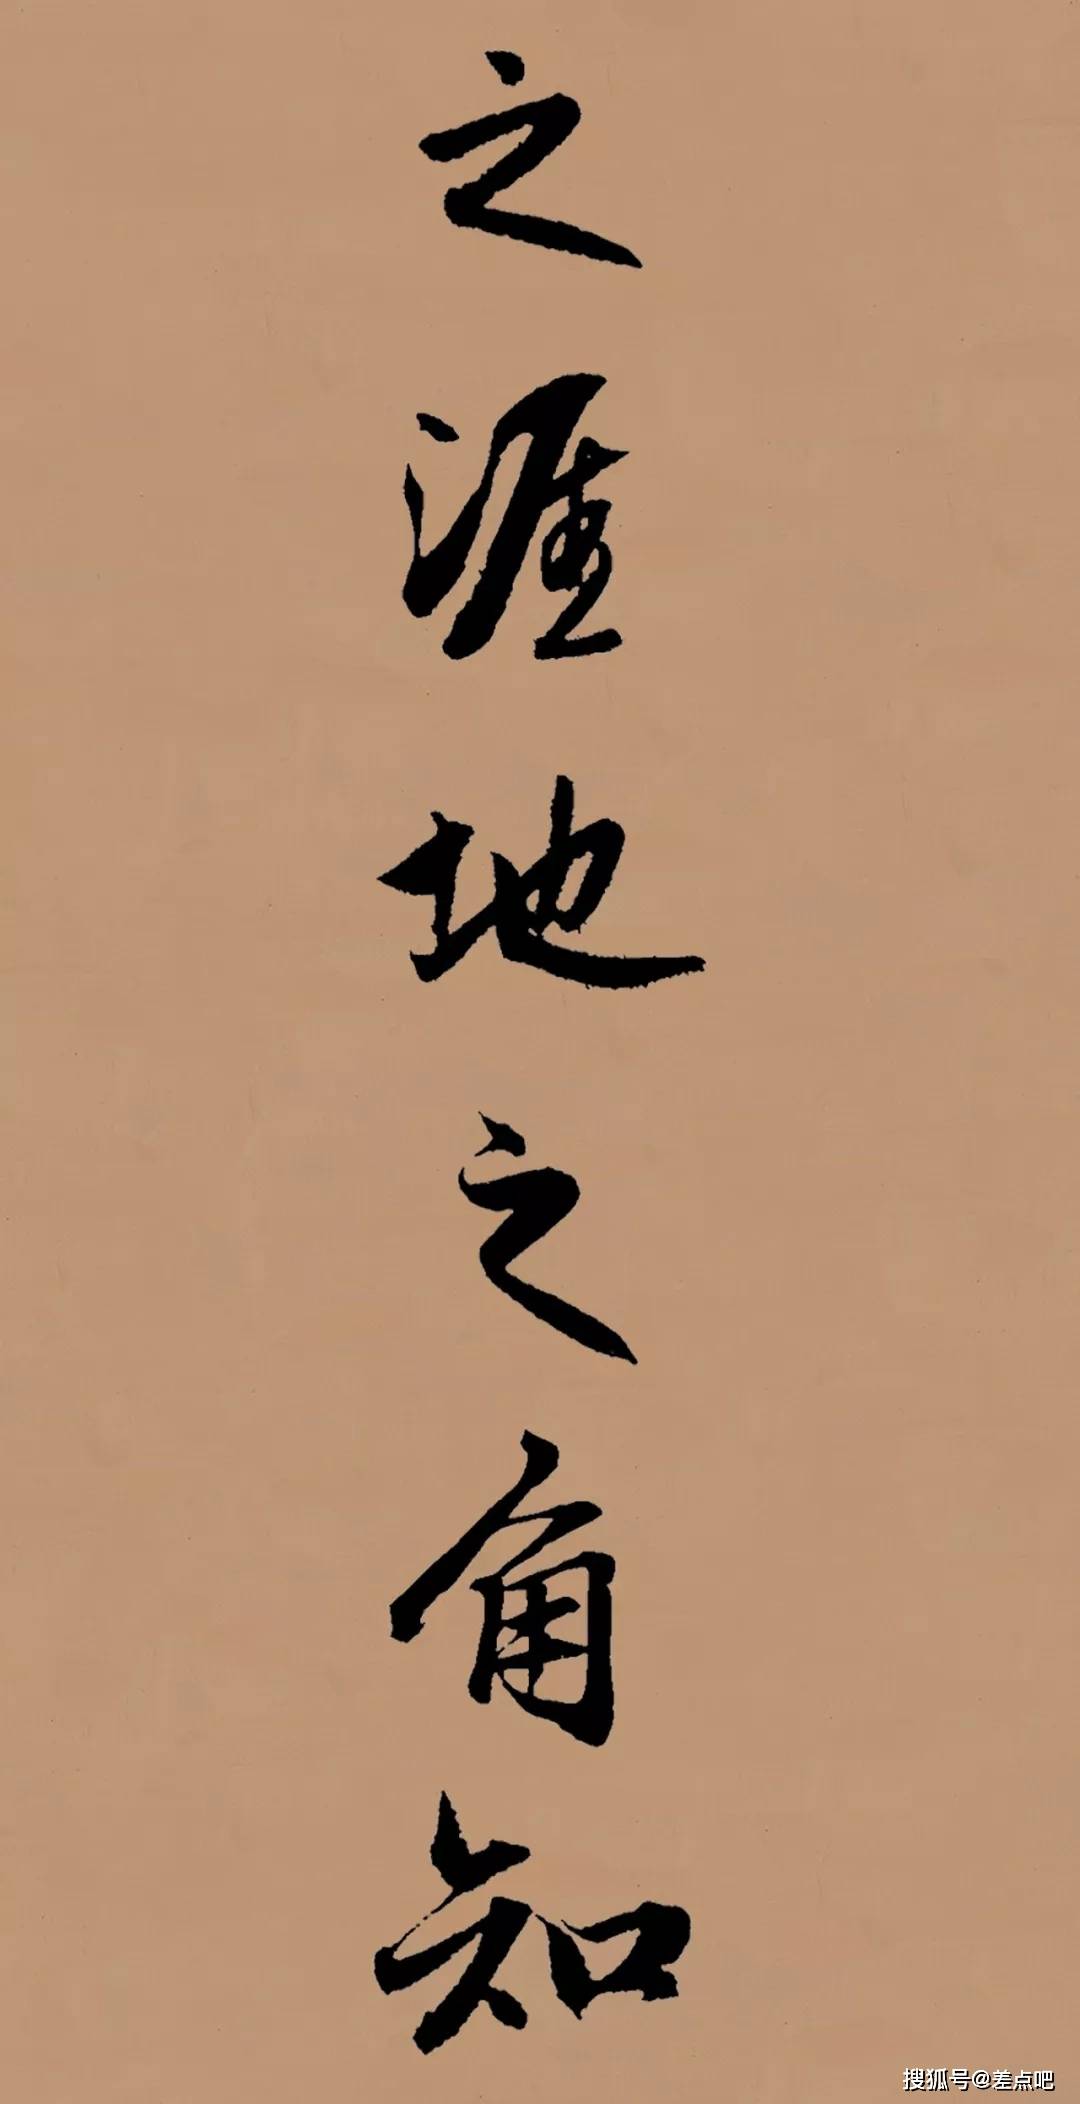 之涯地之角知
搜狐号@差点吧